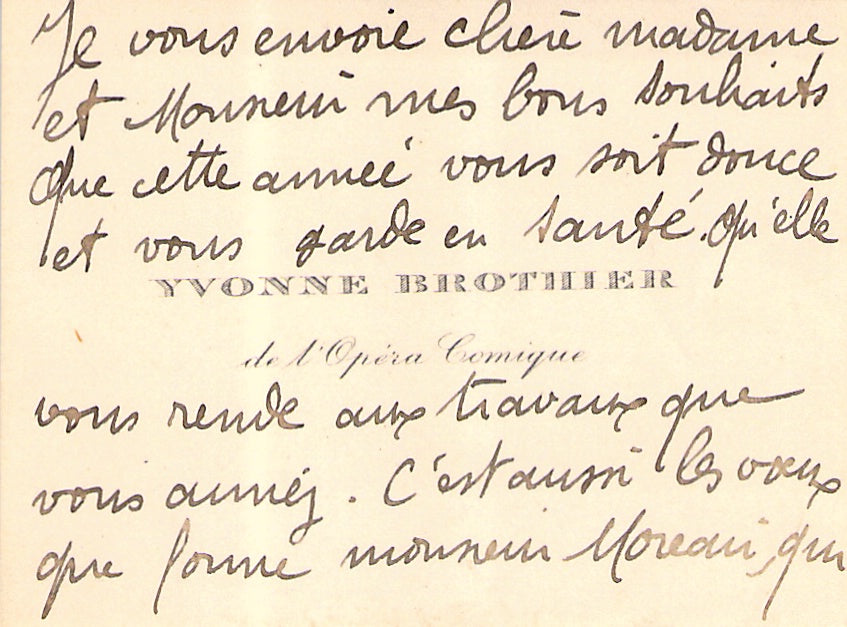 Je vous envoie chère madame
et Monsieur mes bons souhaits
Que cette année vous soit douce
et vous garde en santé. Qu'elle
YVONNE BROTHIER
de l'Opéra Comique
vous rende aux travaux que
vous aimez. C'est aussi les vœux
que forme monsieur Moreau, qui